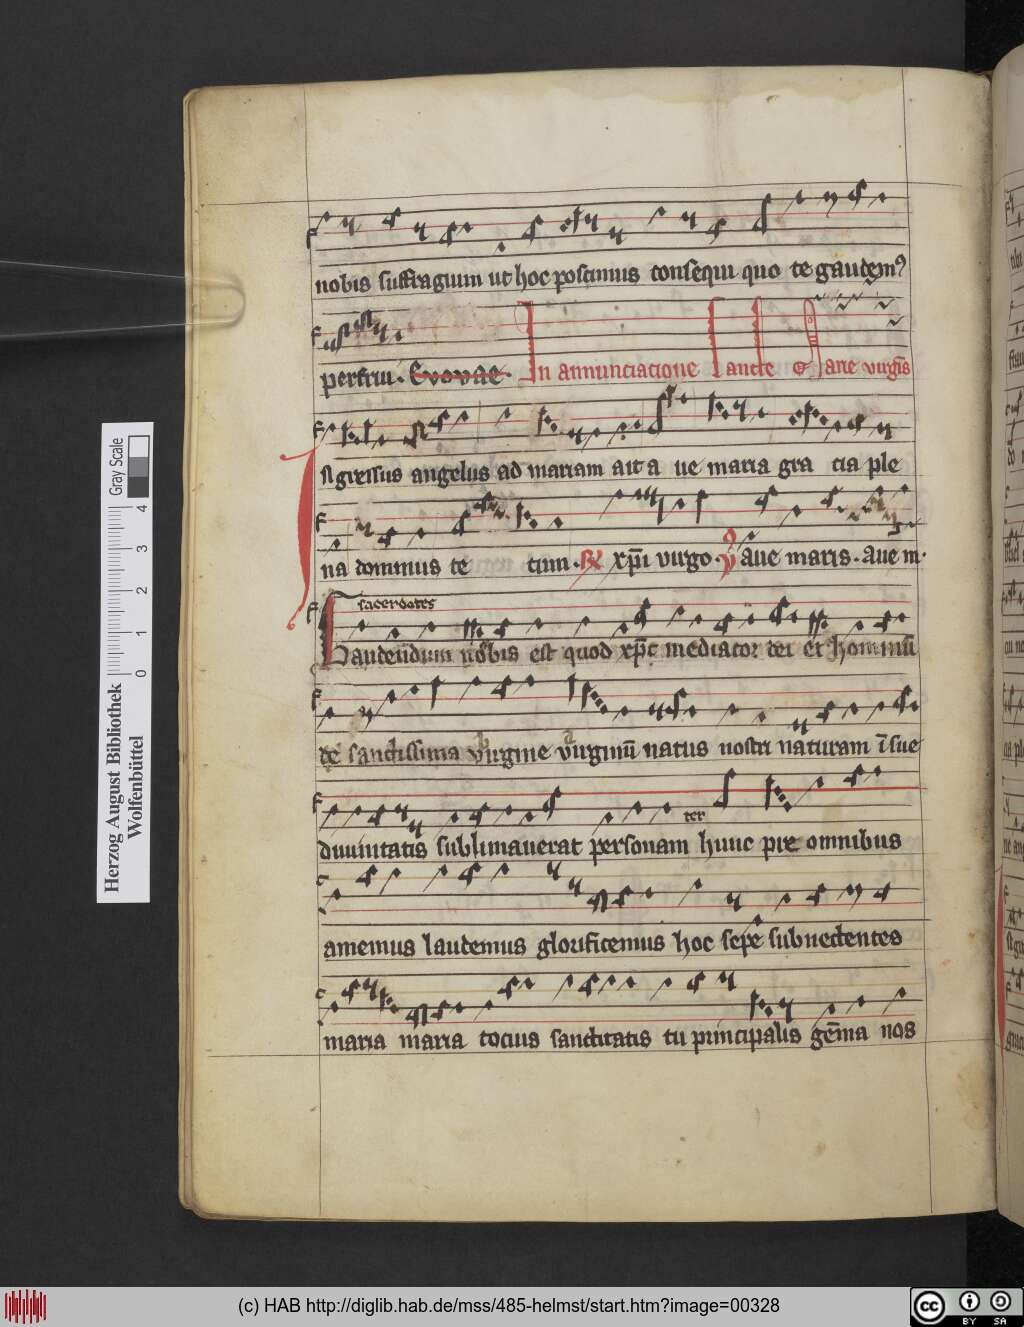 nobis suffragium ut hoc poscimus consequi quo te gaudem⁹
perfrui. Evovae. In annunciacione Sancte Marie virgīs
Ingressus angelus ad mariam ait a ue maria gra cia ple
na dominus te cum. ℟ xp̄i virgo. ℣ aue maris. aue m.
sacerdotes
Gaudendum nobis est quod xp̄c mediator dei et hominū
de sanctissima virgine virginū natus nostri naturam ī sue
diuinitatis sublimauerat personam hunc pre omnibus
ter
amemus laudemus glorificemus hoc sepe subnectentes
maria maria tocius sanctitatis tu principalis gēma nos
Herzog August Bibliothek
Wolfenbüttel
0 1 2 3 4
Gray Scale
(c) HAB http://diglib.hab.de/mss/485-helmst/start.htm?image=00328
cc BY SA